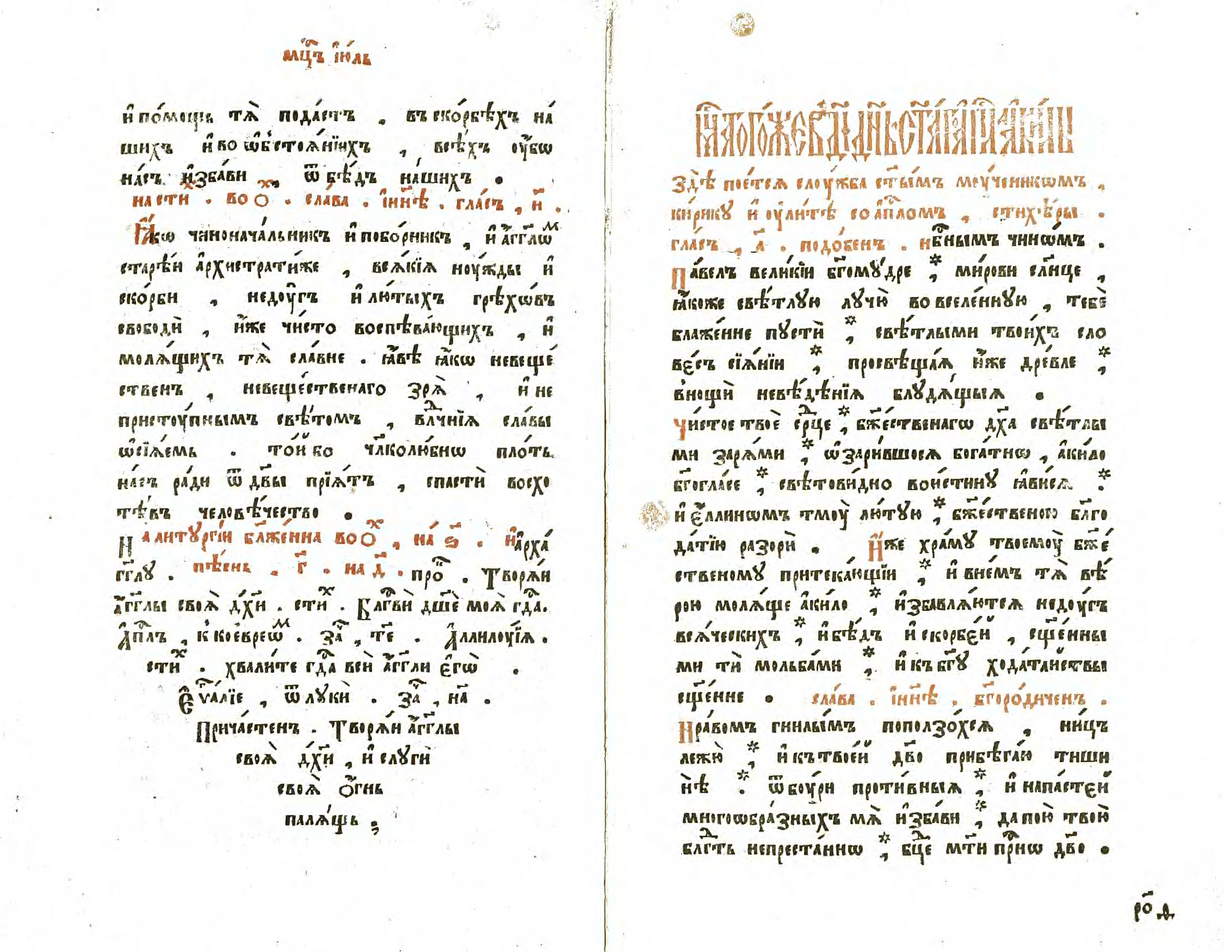 мц҃ъ і҆ю́ль
и҆ по́мощь тѧ̀ пода́стъ . въ ско́рбѣхъ на́
шихъ и҆ во ѡ҆бстоѧ́нїихъ , всѣ́хъ ᲂу҆́бѡ
на́съ и҆зба́ви , ѿ бѣ́дъ на́шихъ .
на сти́х . во Ѻ҆х . сла́ва . і҆ ны́нѣ . гла́съ , и҃ .
Ꙗ҆́кѡ чинонача́льникъ и҆ побо́рникъ , и҆ а҆́гг҃лѡм
старѣ́и а҆рхистрати́же , всѧ́кїѧ нᲂу́жды и҆
ско́рби , недꙋ́гъ и҆ лю́тыхъ грѣхѡ́въ
свободѝ , и҆̀же чи́сто воспѣва́ющихъ , и҆
молѧ́щихъ тѧ̀ сла́вне . ꙗ҆́вѣ ꙗ҆́кѡ невеще́
ственъ , невеще́ственаго зрѧ̀ , и҆ не
пристᲂу́пнымъ свѣ́томъ , влⷣчнїѧ сла́вы
ѡ҆сїѧ́емь . то́и бо чл҃колю́бнѡ пло́ть
на́съ ра́ди ѿ дв҃ы прїѧ́тъ , спастѝ восхо
тѣ́въ человѣ́чество .
На литᲂургі́и бл҃же́нна во Ѻ҆х , на́ ѕ҃ . и҆ а҆рха́
гг҃лу . пѣ́снь . г҃ . на д҃ . про́к . Творѧ́и
а҆́гг҃лы своѧ̀ дх҃и . сти́х . Благⷭ҇вѝ дш҃е моѧ̀ гдⷭ҇а .
А҆пⷭ҇лъ , к коевре́ѡм . за́ч , те҃ . А҆ллилᲂу́їѧ .
сти́х . хвали́те гдⷭ҇а всѝ а҆́гг҃ли є҆гѡ̀ .
Є҆ѵⷢ҇а́лїе , ѿ лꙋкѝ . за́ч , на҃ .
Прича́стен . Творѧ́и а҆́гг҃лы
своѧ̀ дх҃и , и҆ слꙋгѝ
своѧ̀ Ѻ҆́гнь
палѧ́щь ;
здѣ̀ пое́тсѧ слᲂу́жба ст҃ы́мъ мᲂу́ченикѡмъ ,
ки́рикꙋ и҆ ᲂу҆ли́тѣ со а҆пⷭ҇ломъ , стихѣ́ры .
гла́съ , а҃ . подо́бен . нбⷭ҇нымъ чинѡ́мъ .
Па́велъ вели́кїи бг҃омꙋ́дре , * ми́рови сл҃нце ,
ꙗ҆́коже свѣ́тлꙋю лꙋчю̀ во вселе́ннꙋю , тебѐ
блаже́нне пꙋстѝ , * свѣ́тлыми твои́хъ сло
ве́съ сїѧ́нїи , * просвѣща́ѧ и҆̀же дре́вле , *
внощѝ невѣ́дѣнїѧ блꙋдѧ́щыѧ .
Чи́стое твоѐ срⷣце , * бж҃е́ственагѡ дх҃а свѣ́тлы
ми зарѧ́ми , * ѡ҆зари́вшоесѧ бога́тнѡ , а҆ки́ло
бг҃огла́се , * свѣтови́дно вои́стинꙋ ꙗ҆ви́сѧ . *
и҆ є҆́ллинѡмъ тмᲂу̀ лю́тꙋю , * бж҃е́ственою бл҃го
да́тїю разорѝ . И҆̀же хра́мꙋ твоемᲂу̀ бж҃е́
ственомꙋ притека́ющїи , * и҆ в не́мъ тѧ̀ вѣ́
рою молѧ́ще а҆ки́ло , * и҆збавлѧ́ютсѧ недꙋ́гъ
всѧ́ческихъ , * и҆ бѣ́дъ и҆ скорбе́и , сщ҃е́нны
ми тѝ мольба́ми , * и҆ къ бг҃ꙋ хода́таиствы
сщ҃е́нне . сла́ва . і҆ ны́нѣ . бг҃оро́диченъ .
Нра́вомъ гнилы́мъ поползо́хсѧ , ни́цъ
лежю̀ , * и҆ къ твое́и дв҃о прибѣга́ю тиши
нѣ̀ . * ѿ бᲂу́ри проти́вныѧ , * и҆ напасте́и
многоѡбра́зныхъ мѧ̀ и҆зба́ви , * да пою̀ твою̀
блгⷣть непреста́ннѡ , * бц҃е мт҃и прⷭ҇нѡ дв҃о .